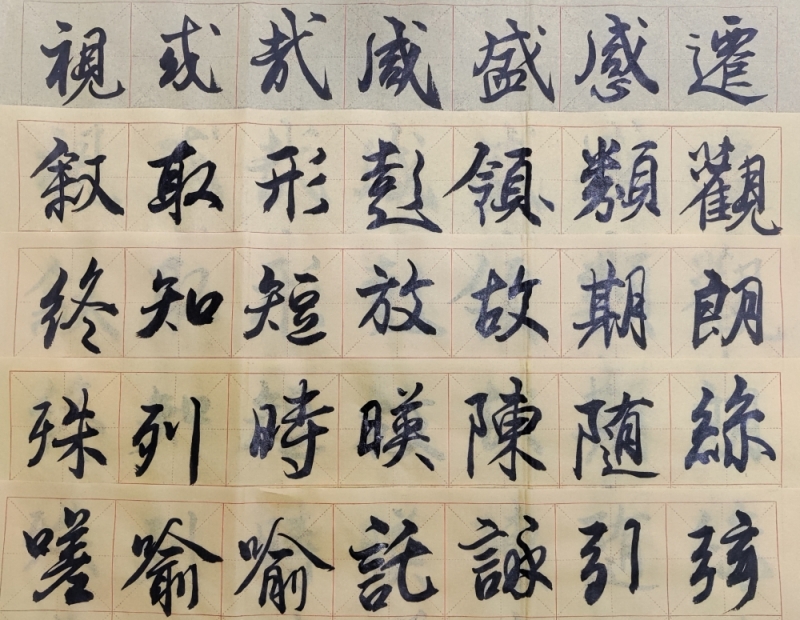 視或哉咸盛感遷
叙取形彭領類觀
終知短放故期朗
殊列時暎陳随絲
嗟喻喻託詠引弦